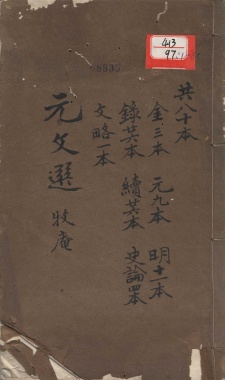 413
97
08935
共八十本
金三本 元九本 明十一本
錄共本 續共本 史論四本
文略一本
元文選 牧庵